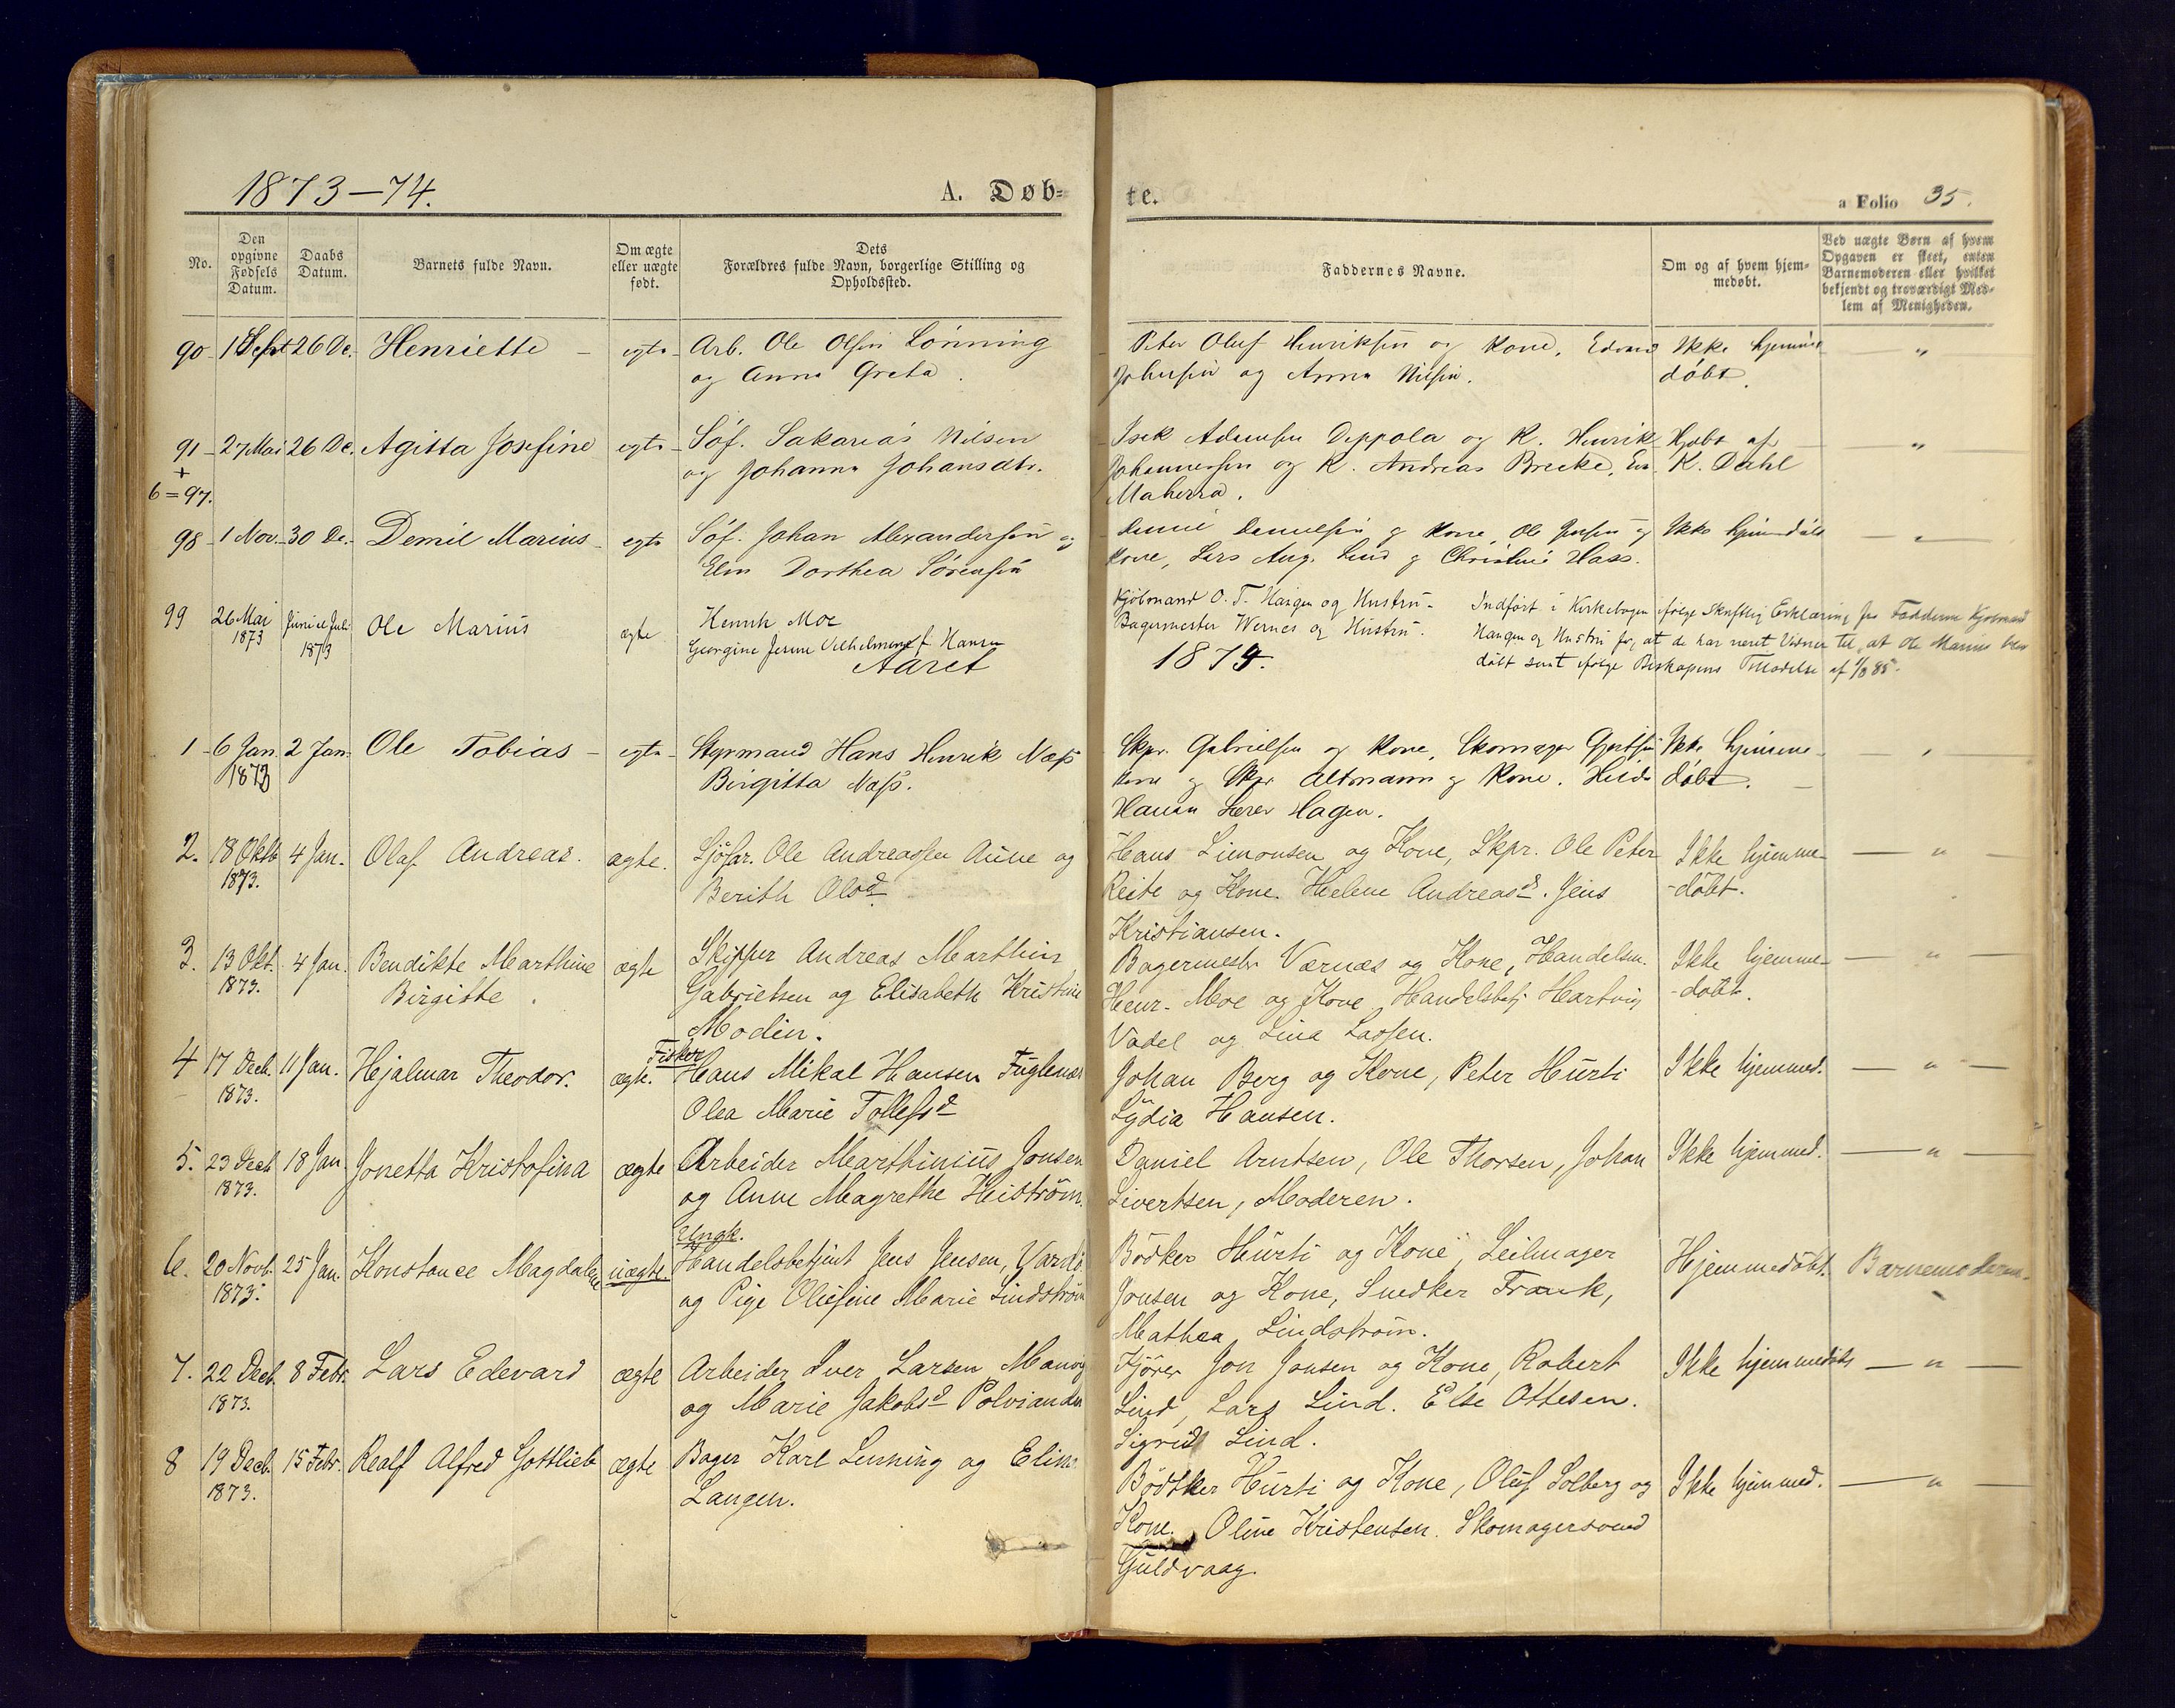 1873–74.
A. Døb-
te.
a Folio 35.
No.
Den opgivne Fødsels Datum.
Daabs Datum.
Barnets fulde Navn.
Om ægte eller uægte født.
Dets Forældres fulde Navn, borgerlige Stilling og Opholdssted.
Faddernes Navne.
Om og af hvem hjem-
medøbt.
Ved uægte Børn af hvem
Opgaven er skeet, enten
Barnemoderen eller hvilket
bekjendt og troværdigt Med-
lem af Menigheden.
90 1 Sept 26 De. Henriette egte Arb. Ole Olsen Lønning
og Anna Greta.
Peter Oluf Henriksen og Kone, Edvard
Johnsen og Anna Nilsen.
Ikke hjemme
døbt.
91 27 Mai 26 De. Agitta Josefine egte Söf. Sakarias Nilsen
og Johanna Johansdtr.
+
6=97.
Isak Adamsen Deppola og K. Henrik
Johannessen og K. Andreas Brecke, Eva
Maherra.
Hjdbt af
K. Dahl
98 1 Nov. 30 De. Demil Marius egte Söf. Johan Alexandersen og
Elen Dorthea Sörensen
Daniel Danielsen og Kone, Ole Jensen og
Kone, Lars Aug. Lind og Christine Hass.
Ikke hjemmdöbt
99 26 Mai 1873 Juni el Juli 1873 Ole Marius ægte Henrik Moe
Georgine Jensine Vilhelmine f. Hansen
Kjöbmand O. T. Hangen og Hustru.
Bagermester Wernes og Hustru.
Indfört i Kirkebogen ifølge Skriftlig Erklæring fra Fadderne Kjøbmand
Hangen og Hustru for, at de har været Vidner til, at Ole Marius blev
döbt samt ifølge Biskopens Tilladelse af 1/8 85.
Aaret 1874.
1 6 Jan. 1873 2 Jan. Ole Tobias egte Styrmand Hans Henrik Næss
Birgitta Næss.
Skpr. Gabrielsen og Kone, Skomager Gjertsen
Kone og Skpr Altmann og Kone. Hilda
Hansen Lærer Hagen.
Ikke hjemme-
döbt.
2. 18 Oktb 1873. 4 Jan. Olaf Andreas. ægte. Sjöfar. Ole Andreassen Aune og
Berith Olsd.
Hans Simonsen og Kone, Skpr. Ole Peter
Reite og Kone. Helene Andreasd. Jens
Kristiansen.
Ikke hjemme-
-döbt.
3. 13 Okt. 1873. 4 Jan. Bendikte Marthine
Birgitte. ægte Skipper Andreas Marthin
Gabrielsen og Elisabeth Kristine
Modin.
Bagermester Værnæs og Kone, Handelsm.
Henr. Moe og Kone, Handelsbetj. Hartvig
Vadel og Lina Larsen.
Ikke hjemme-
-döbt.
4 17 Decb. 1873. 11 Jan. Hjalmar Theodor. ægte. Fisker
Hans Mikal Hansen Fuglenæs
Olea Marie Tollefsd
Johan Berg og Kone, Peter Hurti
Lydia Hansen.
Ikke hjemmed.
5. 23 Decb 1873. 18 Jan Jonetta Kristofina ægte Arbeider Marthinius Jonsen
og Anne Magrethe Heiström.
Daniel Arntsen, Ole Thorsen, Johan
Sivertsen, Moderen.
Ikke hjemmed.
6. 20 Novb. 1873. 25 Jan. Konstance Magdalene uægte. Ungk.
Handelsbetjent Jens Jensen, Vardö
og Pige Oliefine Marie Lindström
Bödker Hurti og Kone, Seilmager
Jonsen og Kone, Snedker Frank,
Mathea Lindström.
Hjemmedöbt. Barnemoderen.
7. 22 Decb. 1873. 8 Febr. Lars Edevard ægte Arbeider Iver Larsen Manvig
og Marie Jakobsd Polviander
Kjörer Jon Jonsen og Kone, Robert
Lind, Lars Lind. Else Ottesen.
Sigrid Lind.
Ikke hjemmedöbt
8 19 Decb. 1873. 15 Febr. Realf Alfred Gottlieb ægte Bager Karl Lenning og Elina
Langen.
Bödtker Hurti og Kone, Oluf Solberg og
Kone. Oline Kristensen. Skomagersvend
Guldvaag.
Ikke hjemmed.